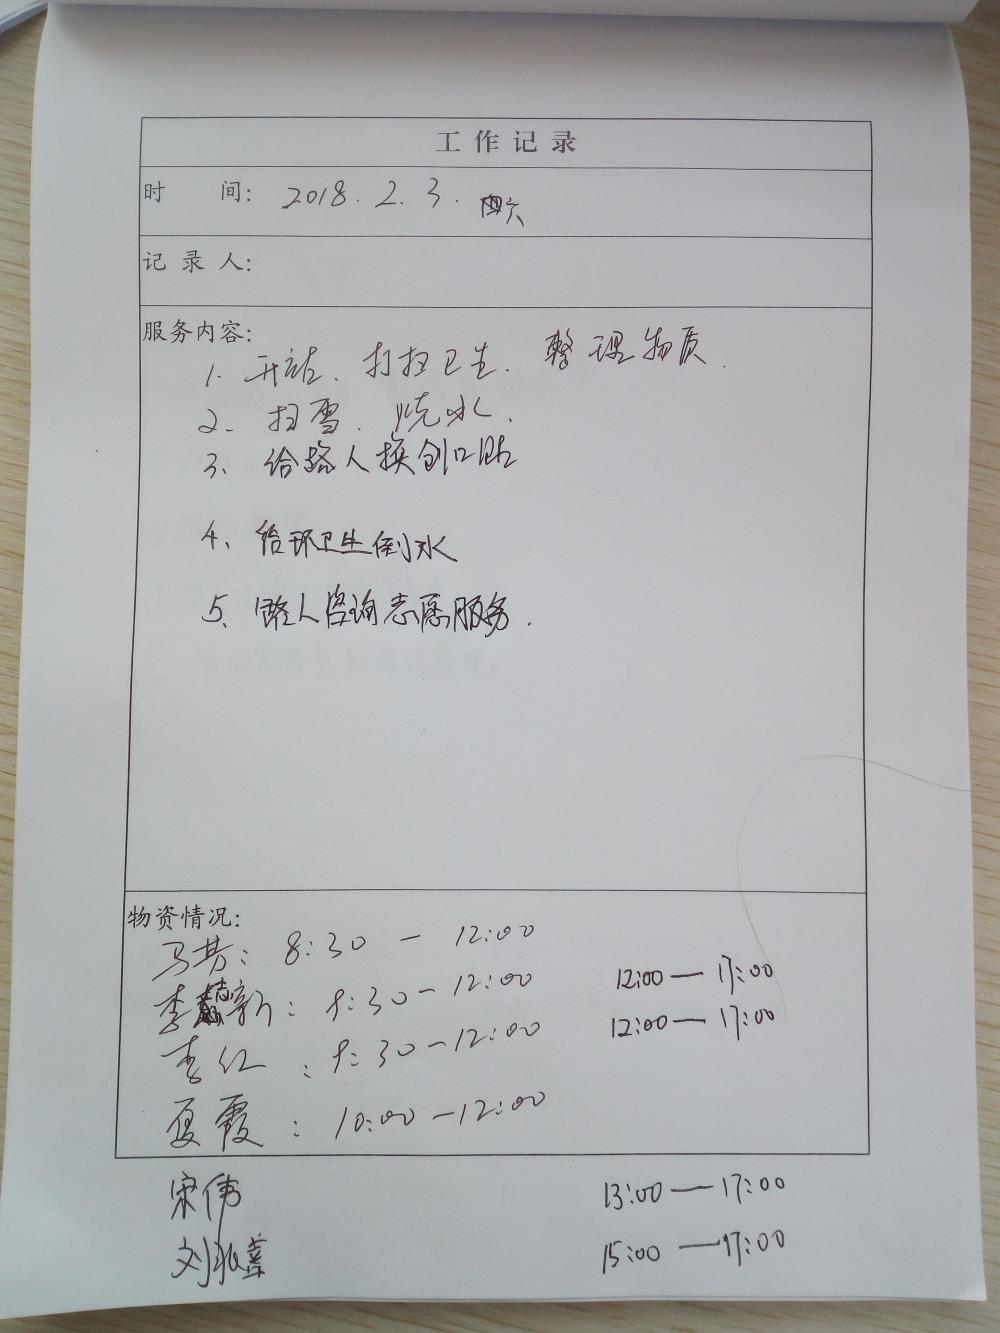 工作记录
时 间: 2018.2.3. 六
记录人:
服务内容:
1. 开站、打扫卫生、整理物质.
2. 扫雪、烧水.
3、给路人换创口贴
4、给环卫生倒水
5、路人咨询志愿服务.
物资情况:
马芳: 8:30 — 12:00
李慧新: 9:30 — 12:00 12:00 — 17:00
李红: 9:30 — 12:00 12:00 — 17:00
夏霞: 10:00 — 12:00
宋伟 13:00 — 17:00
刘 15:00 — 17:00